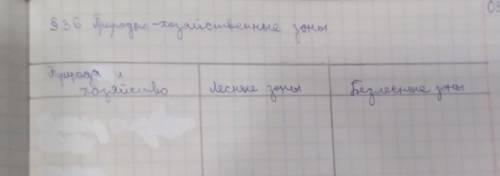 §36 Природно-хозяйственные зоны
Природа и
хозяйство
Лесные зоны
Безлесные зоны